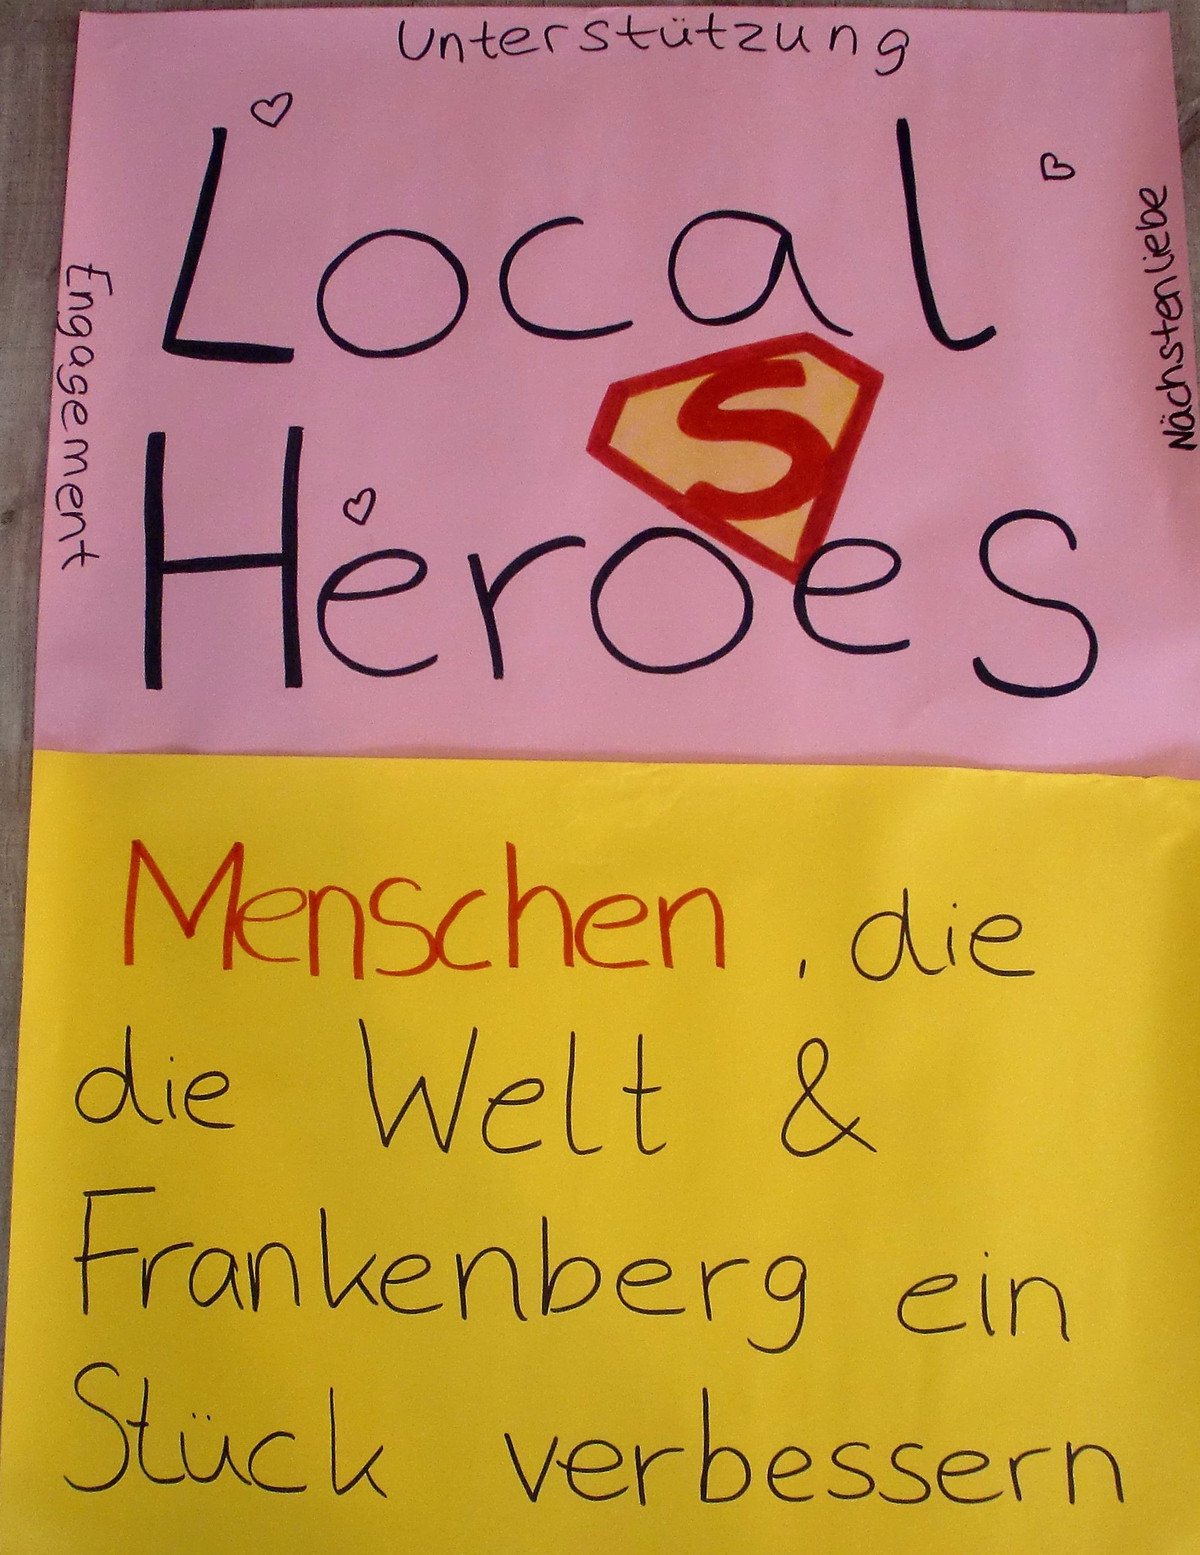 Unterstützung
Local
Engagement
Nächstenliebe
S
Heroes
Menschen, die
die Welt &
Frankenberg ein
Stück verbessern